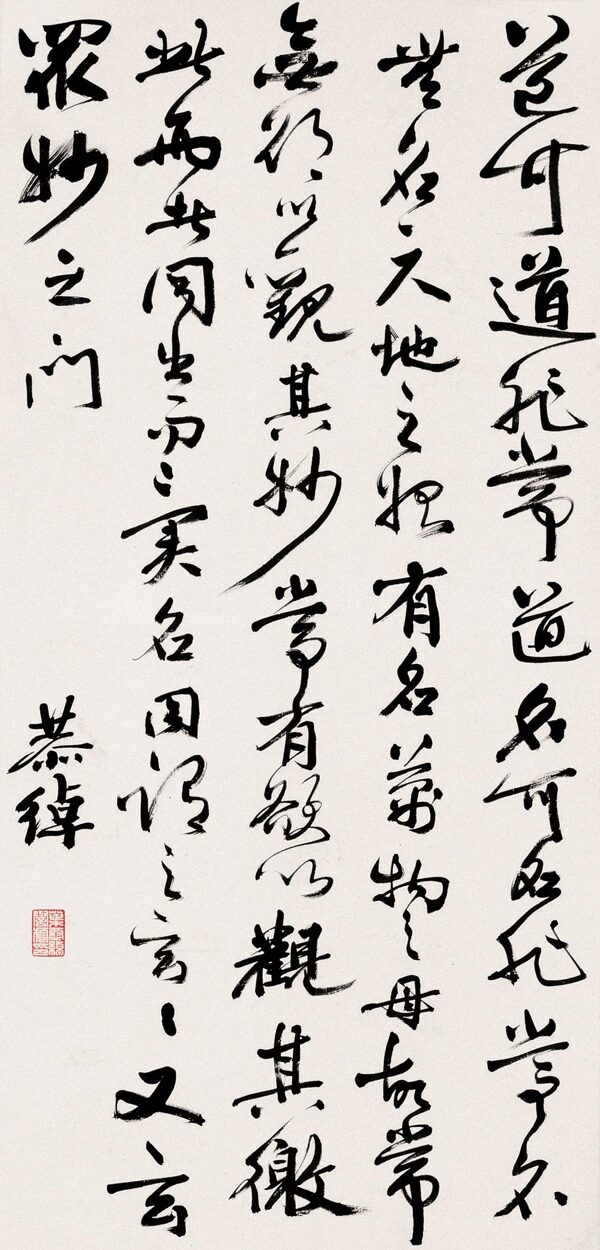 道可道非常道名可名非常名
無名天地之始有名萬物之母故常
無欲以觀其妙常有欲以觀其徼
此兩者同出而々異名同謂之玄々又玄
眾妙之門
恭綽